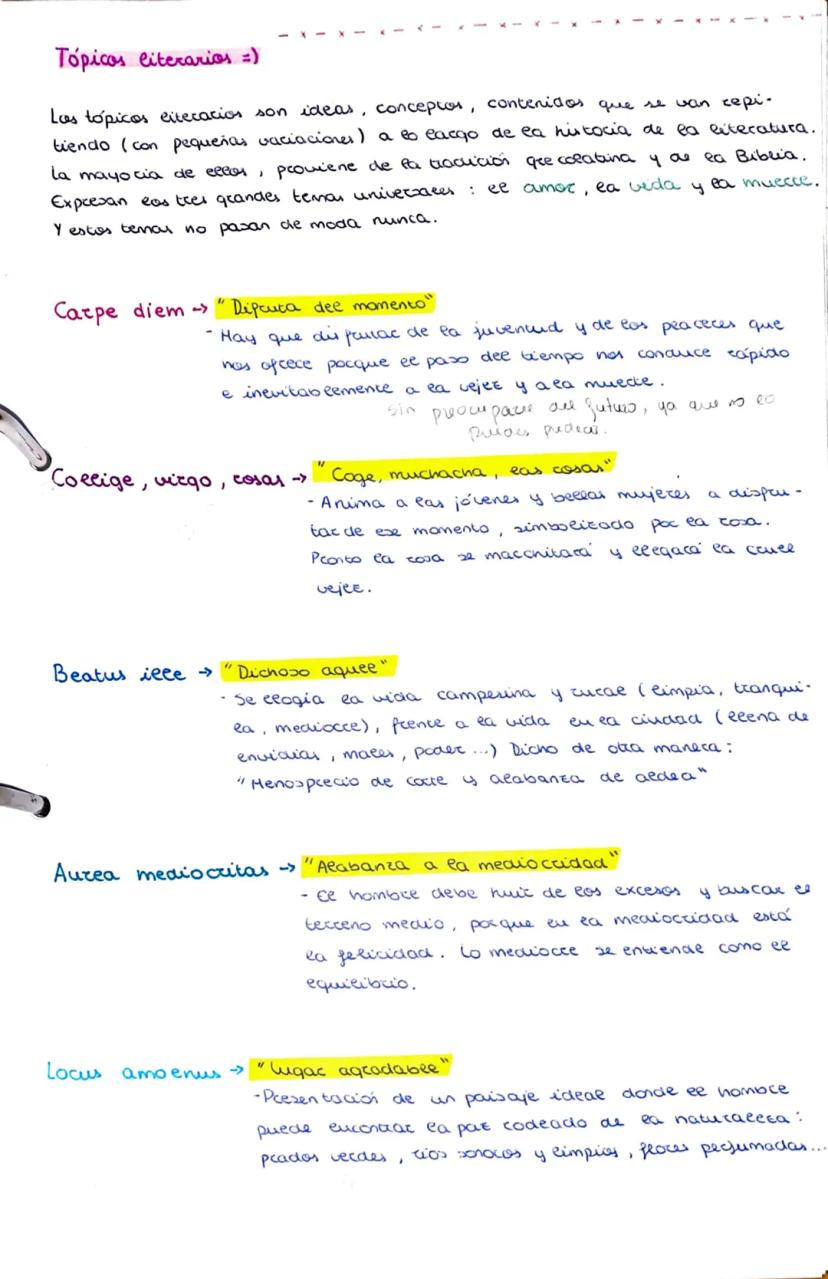 Tópicos literarios =)
Los tópicos literarios son ideas, conceptos, contenidos que se van repi-
tiendo (con pequeñas variaciones) a lo largo de la historia de la literatura.
La mayoría de ellos, proviene de la tradición grecolatina y de la Biblia.
Expresan los tres grandes temas universales: el amor, la vida y la muerte.
Y estos temas no pasan de moda nunca.
Carpe diem → "Disfruta del momento"
- Hay que disfrutar de la juventud y de los placeres que
nos ofrece porque el paso del tiempo nos conduce rápido
e inevitablemente a la vejez y a la muerte.
sin preocuparse del futuro, ya que no lo
puedes predecir.
Collige, virgo, rosas → "Coge, muchacha, las rosas"
- Anima a las jóvenes y bellas mujeres a disfru-
tar de ese momento, simbolizado por la rosa.
Pronto la rosa se marchitará y llegará la cruel
vejez.
Beatus ille → "Dichoso aquel"
- Se elogia la vida campesina y rural (limpia, tranqui-
la, mediocre), frente a la vida en la ciudad (llena de
envidias, males, poder...) Dicho de otra manera:
"Menosprecio de corte y alabanza de aldea"
Aurea mediocritas → "Alabanza a la mediocridad"
- El hombre debe huir de los excesos y buscar el
terreno medio, porque en la mediocridad está
la felicidad. Lo mediocre se entiende como el
equilibrio.
Locus amoenus → "Lugar agradable"
- Presentación de un paisaje ideal donde el hombre
puede encontrar la paz rodeado de la naturaleza:
prados verdes, ríos sonoros y limpios, flores perfumadas...